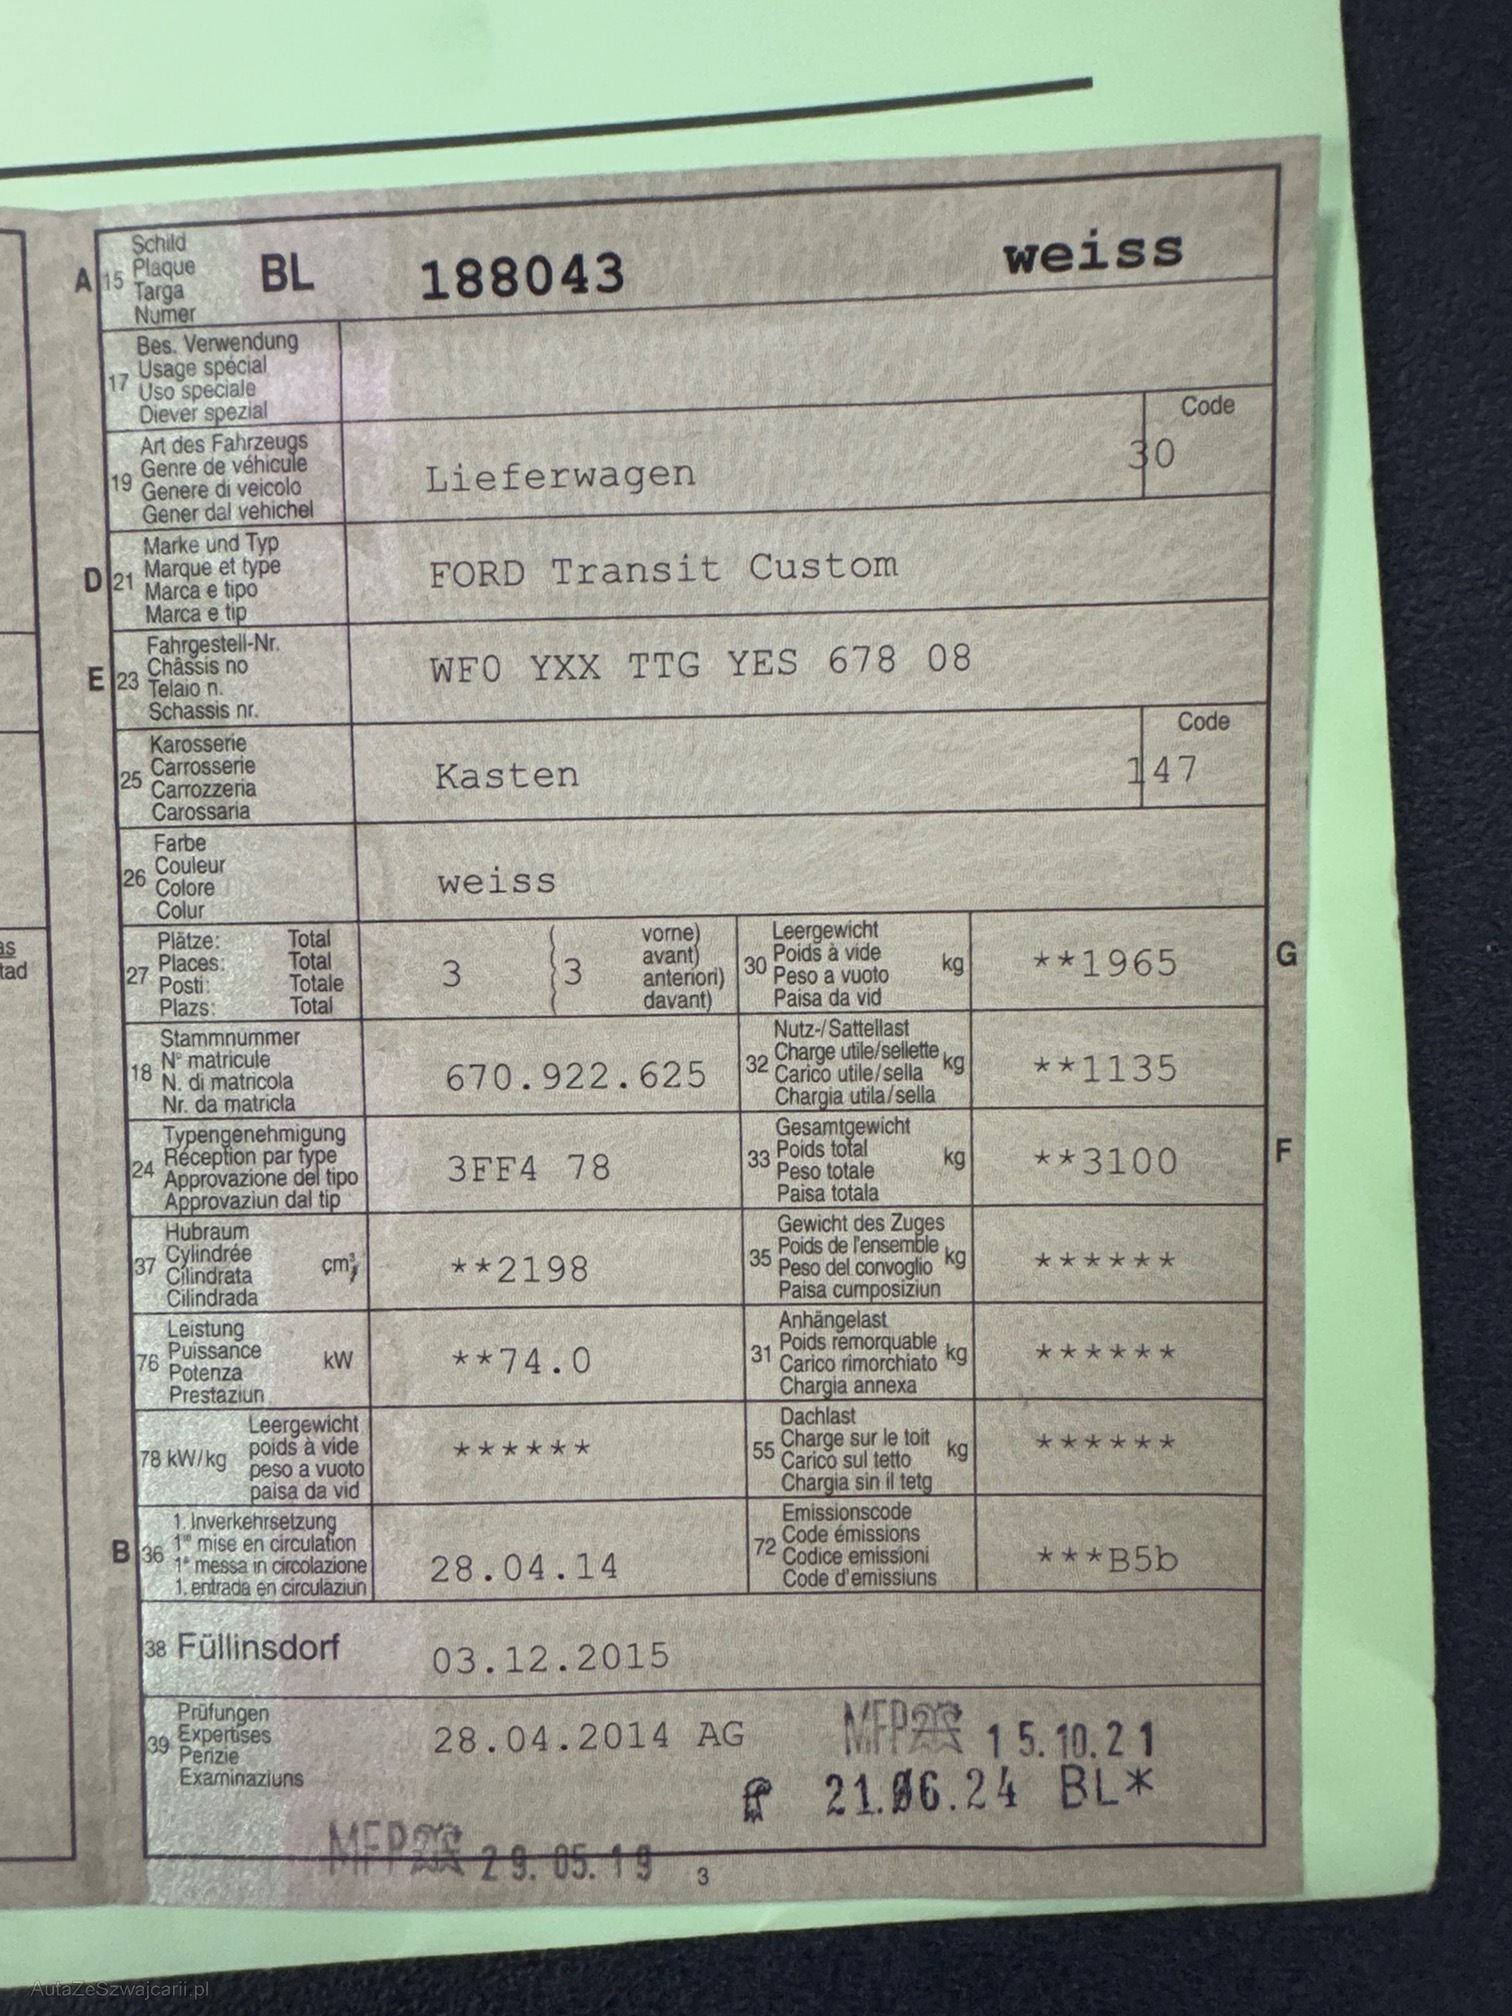 A 15 Schild
Plaque
Targa
Numer
BL 188043 weiss
17 Bes. Verwendung
Usage spécial
Uso speciale
Diever spezial
19 Art des Fahrzeugs
Genre de véhicule
Genere di veicolo
Gener dal vehichel
Lieferwagen
Code
30
D 21 Marke und Typ
Marque et type
Marca e tipo
Marca e tip
FORD Transit Custom
E 23 Fahrgestell-Nr.
Châssis no
Telaio n.
Schassis nr.
WF0 YXX TTG YES 678 08
25 Karosserie
Carrosserie
Carrozzeria
Carossaria
Kasten
Code
147
26 Farbe
Couleur
Colore
Colur
weiss
27 Plätze: Total
Places: Total
Posti: Totale
Plazs: Total
3 3
vorne)
avant)
anteriori)
davant)
30 Leergewicht
Poids à vide
Peso a vuoto
Paisa da vid
kg
**1965
G
18 Stammnummer
N° matricule
N. di matricola
Nr. da matricla
670.922.625
32 Nutz-/Sattellast
Charge utile/sellette
Carico utile/sella
Chargia utila/sella
kg
**1135
24 Typengenehmigung
Réception par type
Approvazione del tipo
Approvaziun dal tip
3FF4 78
33 Gesamtgewicht
Poids total
Peso totale
Paisa totala
kg
**3100
F
37 Hubraum
Cylindrée
Cilindrata
Cilindrada
cm³
**2198
35 Gewicht des Zuges
Poids de l'ensemble
Peso del convoglio
Paisa cumposiziun
kg
******
76 Leistung
Puissance
Potenza
Prestaziun
kW
**74.0
31 Anhängelast
Poids remorquable
Carico rimorchiato
Chargia annexa
kg
******
78 kW/kg
Leergewicht
poids à vide
peso a vuoto
paisa da vid
******
55 Dachlast
Charge sur le toit
Carico sul tetto
Chargia sin il tetg
kg
******
B 36 1. Inverkehrsetzung
1re mise en circulation
1a messa in circolazione
1. entrada en circulaziun
28.04.14
72 Emissionscode
Code émissions
Codice emissioni
Code d'emissiuns
***B5b
38 Füllinsdorf
03.12.2015
39 Prüfungen
Expertises
Perizie
Examinaziuns
28.04.2014 AG
MFP 15.10.21
21.06.24 BL*
MFP 29.05.19
3
AutaZeSzwajcarii.pl